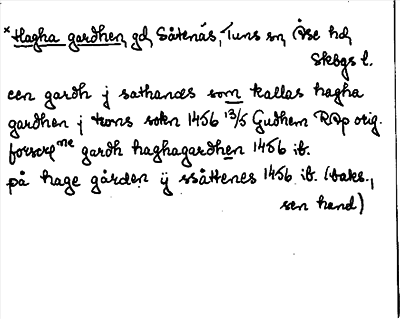 *Hagha gardhen, gd, Såtenäs, Tuns sn, Åse hd,
Skbgs l.
een gardh j sathanæs som kallas hagha
gardhen j tons sokn 1456 13/5 Gudhem RAp orig.
forscrne gardh haghagardhen 1456 ib.
på hage gården ij ssåttenes 1456 ib. (baks.,
sen hand)